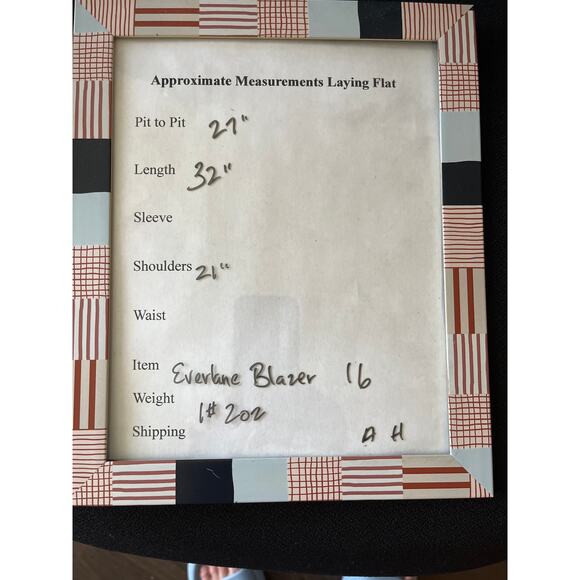 Approximate Measurements Laying Flat
Pit to Pit 27"
Length 32"
Sleeve
Shoulders 21"
Waist
Item Everlane Blazer 16
Weight 1# 2oz
Shipping A H